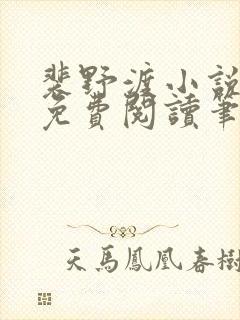 裴野渡小說
免費閱讀筆
天馬鳳凰春樹